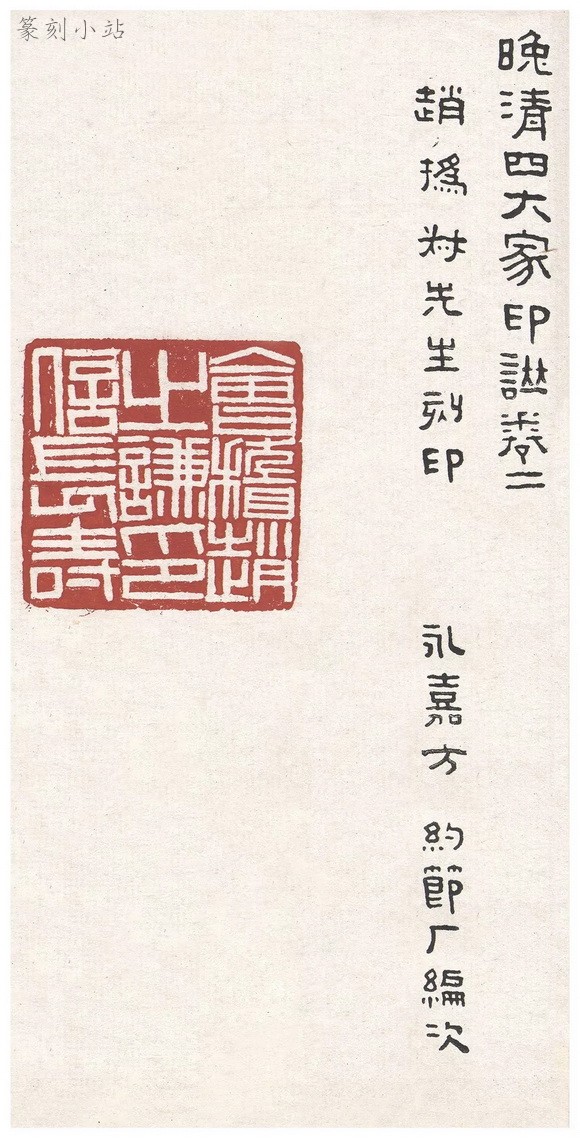 篆刻小站
晚清四大家印譜卷二
趙撝叔先生刻印
永嘉方 約節厂編次
會稽趙
之謙印
信長壽